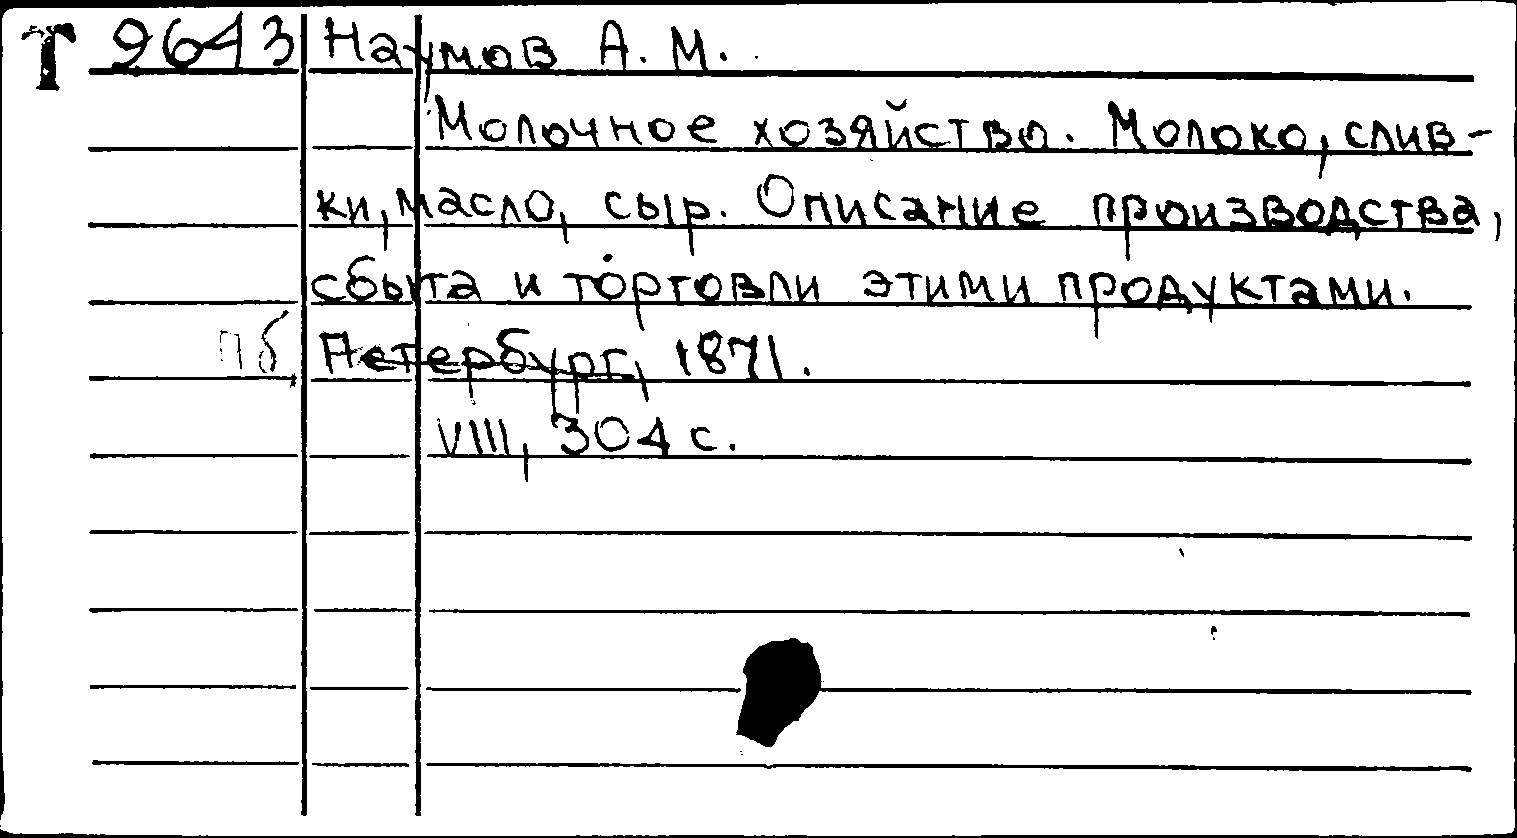 Т 9643 Наумов А. М.
Молочное хозяйство. Молоко, слив-
ки, масло, сыр. Описание производства,
сбыта и торговли этими продуктами.
Пб, Петербург, 1871.
VIII, 304 с.